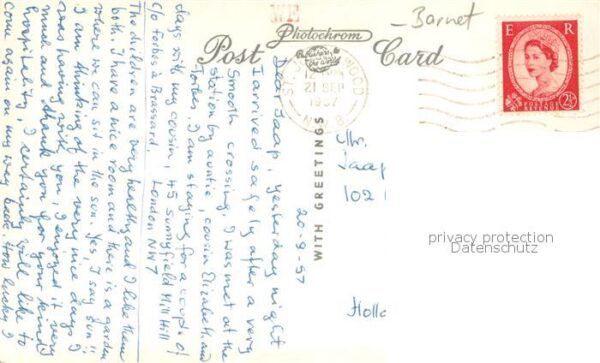 - Barnet
WE
Photochrom
Post Card
E R
POSTAGE REVENUE
2½
ST JOHN'S WOOD
21 SEP
1957
N.W.8
WITH GREETINGS
20-9-57
Dear Jaap, yesterday night
I arrived safely after a very
smooth crossing. I was met at the
station by auntie, cousin Elizabeth and
Forbes. I am staying for a couple of
days with my cousin, 45 Sunnyfield Mill Hill
c/o Forbes à Brassard London NW7
The children are very healthy and I like them
both. I have a nice room and there is a garden
where we can sit in the sun. Yes, I say sun!!
I am thinking of the very nice days I
was having with you, I enjoyed it very
much. Thank you for your kind
hospitality, I certainly will like to
come again on my way back. How lucky I
Mr.
Jaap
102
Holla
privacy protection
Datenschutz